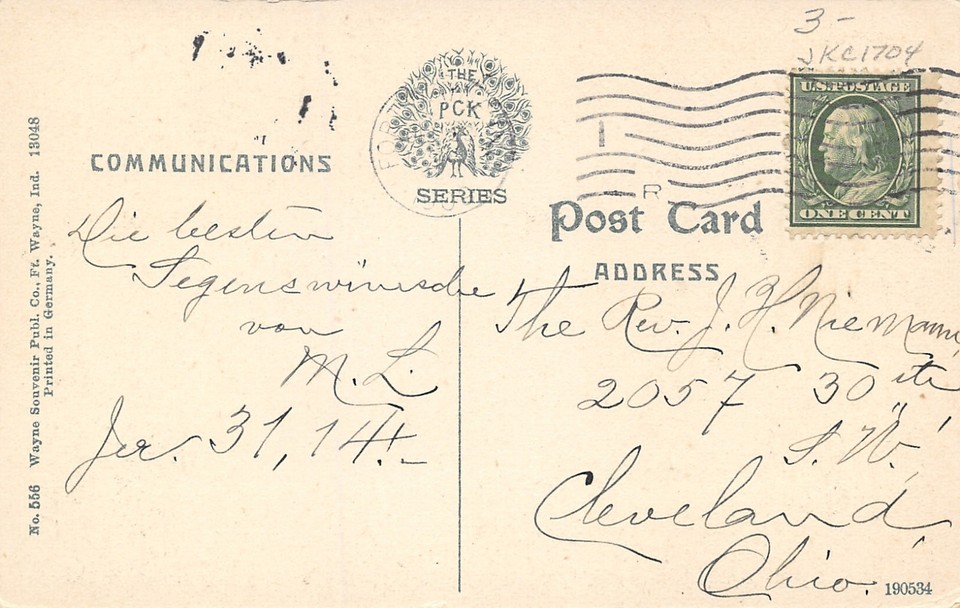 3-
JKC1704
U.S. POSTAGE
ONE CENT
THE
PCK
SERIES
FORT
R
COMMUNICATIONS
Post Card
ADDRESS
Die besten
Segenswünsche
von
M. L.
Jer. 31, 14.-
The Rev. J. H. Niemann,
2057 30th
S. W.,
Cleveland,
Ohio.
190534
No. 556 Wayne Souvenir Publ. Co., Ft. Wayne, Ind. 13048
Printed in Germany.